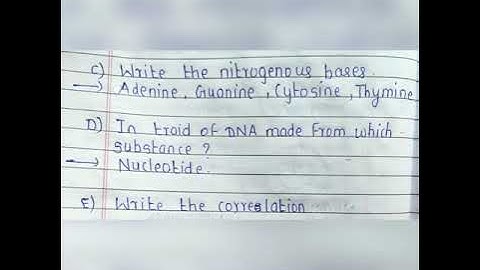 C) Write the nitrogenous bases.
→ Adenine, Guanine, Cytosine, Thymine
D) In traid of DNA made from which
substance ?
→ Nucleotide.
E) Write the correslation